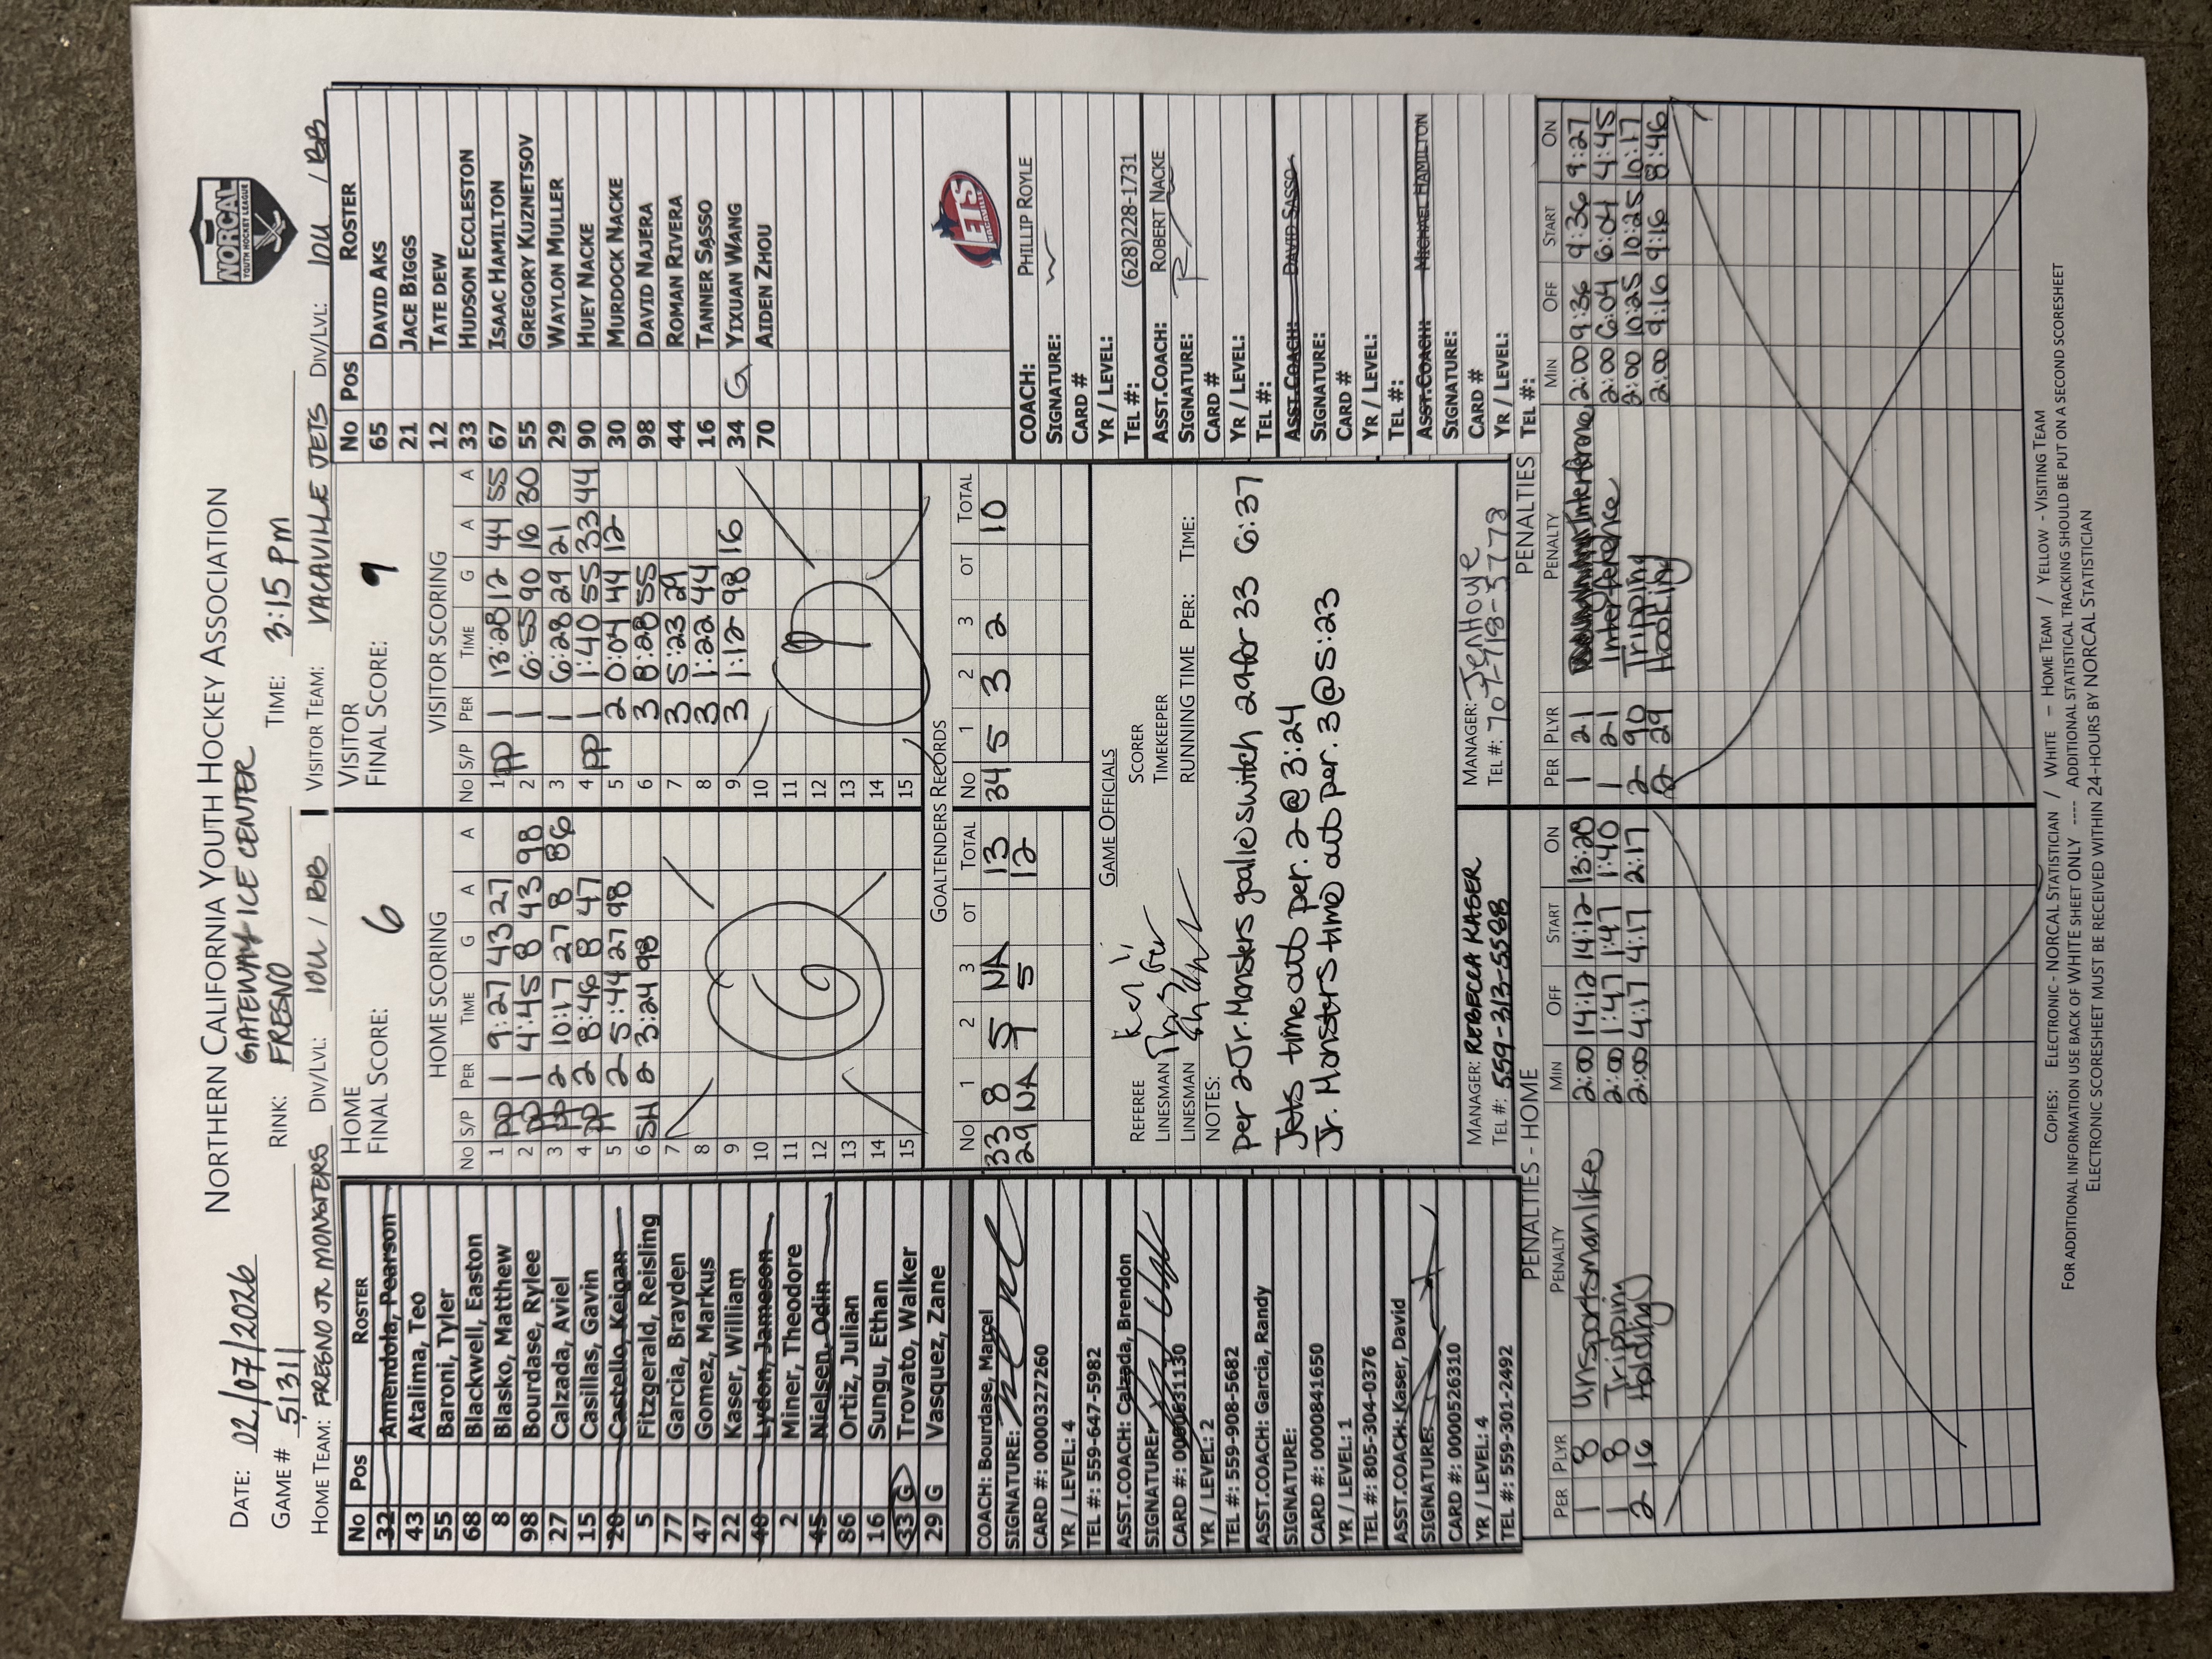 NORTHERN CALIFORNIA YOUTH HOCKEY ASSOCIATION
NORCAL
YOUTH HOCKEY LEAGUE
DATE: 02/07/2026
GATEWAY ICE CENTER
GAME # 5131 RINK: FRESNO TIME: 3:15 pm
HOME TEAM: FRESNO JR MONSTERS DIV/LVL: 10U / BB VISITOR TEAM: VACAVILLE JETS DIV/LVL: 10U / BB
No Pos ROSTER
32 Amendola, Pearson
43 Atalima, Teo
55 Baroni, Tyler
68 Blackwell, Easton
8 Blasko, Matthew
98 Bourdase, Rylee
27 Calzada, Aviel
15 Casillas, Gavin
20 Castello, Keigan
5 Fitzgerald, Reisling
77 Garcia, Brayden
47 Gomez, Markus
22 Kaser, William
40 Lydon, Jameson
2 Miner, Theodore
45 Nielsen, Odin
86 Ortiz, Julian
16 Sungu, Ethan
33 G Trovato, Walker
29 G Vasquez, Zane
COACH: Bourdase, Marcel
SIGNATURE:
CARD #: 0000327260
YR / LEVEL: 4
TEL #: 559-647-5982
ASST.COACH: Calzada, Brendon
SIGNATURE:
CARD #: 0000631130
YR / LEVEL: 2
TEL #: 559-908-5682
ASST.COACH: Garcia, Randy
SIGNATURE:
CARD #: 0000841650
YR / LEVEL: 1
TEL #: 805-304-0376
ASST.COACH: Kaser, David
SIGNATURE:
CARD #: 0000526310
YR / LEVEL: 4
TEL #: 559-301-2492
HOME
FINAL SCORE: 6
HOME SCORING
No S/P PER TIME G A A
1 PP 1 9:27 43 27
2 PP 1 4:45 8 43 98
3 PP 2 10:17 27 8 86
4 PP 2 8:46 8 47
5 2 5:44 27 98
6 SH 2 3:24 98
7
8
9
10
11
12
13
14
15
6
VISITOR
FINAL SCORE: 9
VISITOR SCORING
No S/P PER TIME G A A
1 PP 1 13:28 12 44 55
2 1 6:55 90 16 30
3 1 6:28 29 21
4 PP 1 1:40 55 33 44
5 2 0:04 44 12
6 3 8:28 55
7 3 5:23 29
8 3 1:22 44
9 3 1:12 98 16
10
11
12
13
14
15
9
GOALTENDERS RECORDS
No 1 2 3 OT TOTAL No 1 2 3 OT TOTAL
33 8 5 NA 13 34 5 3 2 10
29 NA 7 5 12
GAME OFFICIALS
REFEREE SCORER
LINESMAN TIMEKEEPER
LINESMAN RUNNING TIME PER: TIME:
NOTES:
per 2 Jr. Monsters goalie switch 29 for 33 6:37
Jets time out per. 2 @ 3:24
Jr. Monsters time out per. 3 @ 5:23
MANAGER: REBECCA KASER MANAGER: Jen Hoye
TEL #: 559-313-5588 TEL #: 707-718-3773
No Pos ROSTER
65 DAVID AKS
21 JACE BIGGS
12 TATE DEW
33 HUDSON ECCLESTON
67 ISAAC HAMILTON
55 GREGORY KUZNETSOV
29 WAYLON MULLER
90 HUEY NACKE
30 MURDOCK NACKE
98 DAVID NAJERA
44 ROMAN RIVERA
16 TANNER SASSO
34 G YIXUAN WANG
70 AIDEN ZHOU
JETS
VACAVILLE
COACH: PHILLIP ROYLE
SIGNATURE:
CARD #
YR / LEVEL:
TEL #: (628)228-1731
ASST.COACH: ROBERT NACKE
SIGNATURE:
CARD #
YR / LEVEL:
TEL #:
ASST.COACH: DAVID SASSO
SIGNATURE:
CARD #
YR / LEVEL:
TEL #:
ASST.COACH: MICHAEL HAMILTON
SIGNATURE:
CARD #
YR / LEVEL:
TEL #:
PENALTIES - HOME
PER PLYR PENALTY MIN OFF START ON
1 8 Unsportsmanlike 2:00 14:12 14:12 13:28
1 8 Tripping 2:00 1:47 1:47 1:40
2 16 Holding 2:00 4:17 4:17 2:17
PENALTIES
PER PLYR PENALTY MIN OFF START ON
1 21 Interference 2:00 9:36 9:36 9:27
1 21 Interference 2:00 6:04 6:04 4:45
2 90 Tripping 2:00 10:25 10:25 10:17
2 29 Hooking 2:00 9:16 9:16 8:46
COPIES: ELECTRONIC - NORCAL STATISTICIAN / WHITE – HOME TEAM / YELLOW - VISITING TEAM
FOR ADDITIONAL INFORMATION USE BACK OF WHITE SHEET ONLY ---- ADDITIONAL STATISTICAL TRACKING SHOULD BE PUT ON A SECOND SCORESHEET
ELECTRONIC SCORESHEET MUST BE RECEIVED WITHIN 24-HOURS BY NORCAL STATISTICIAN